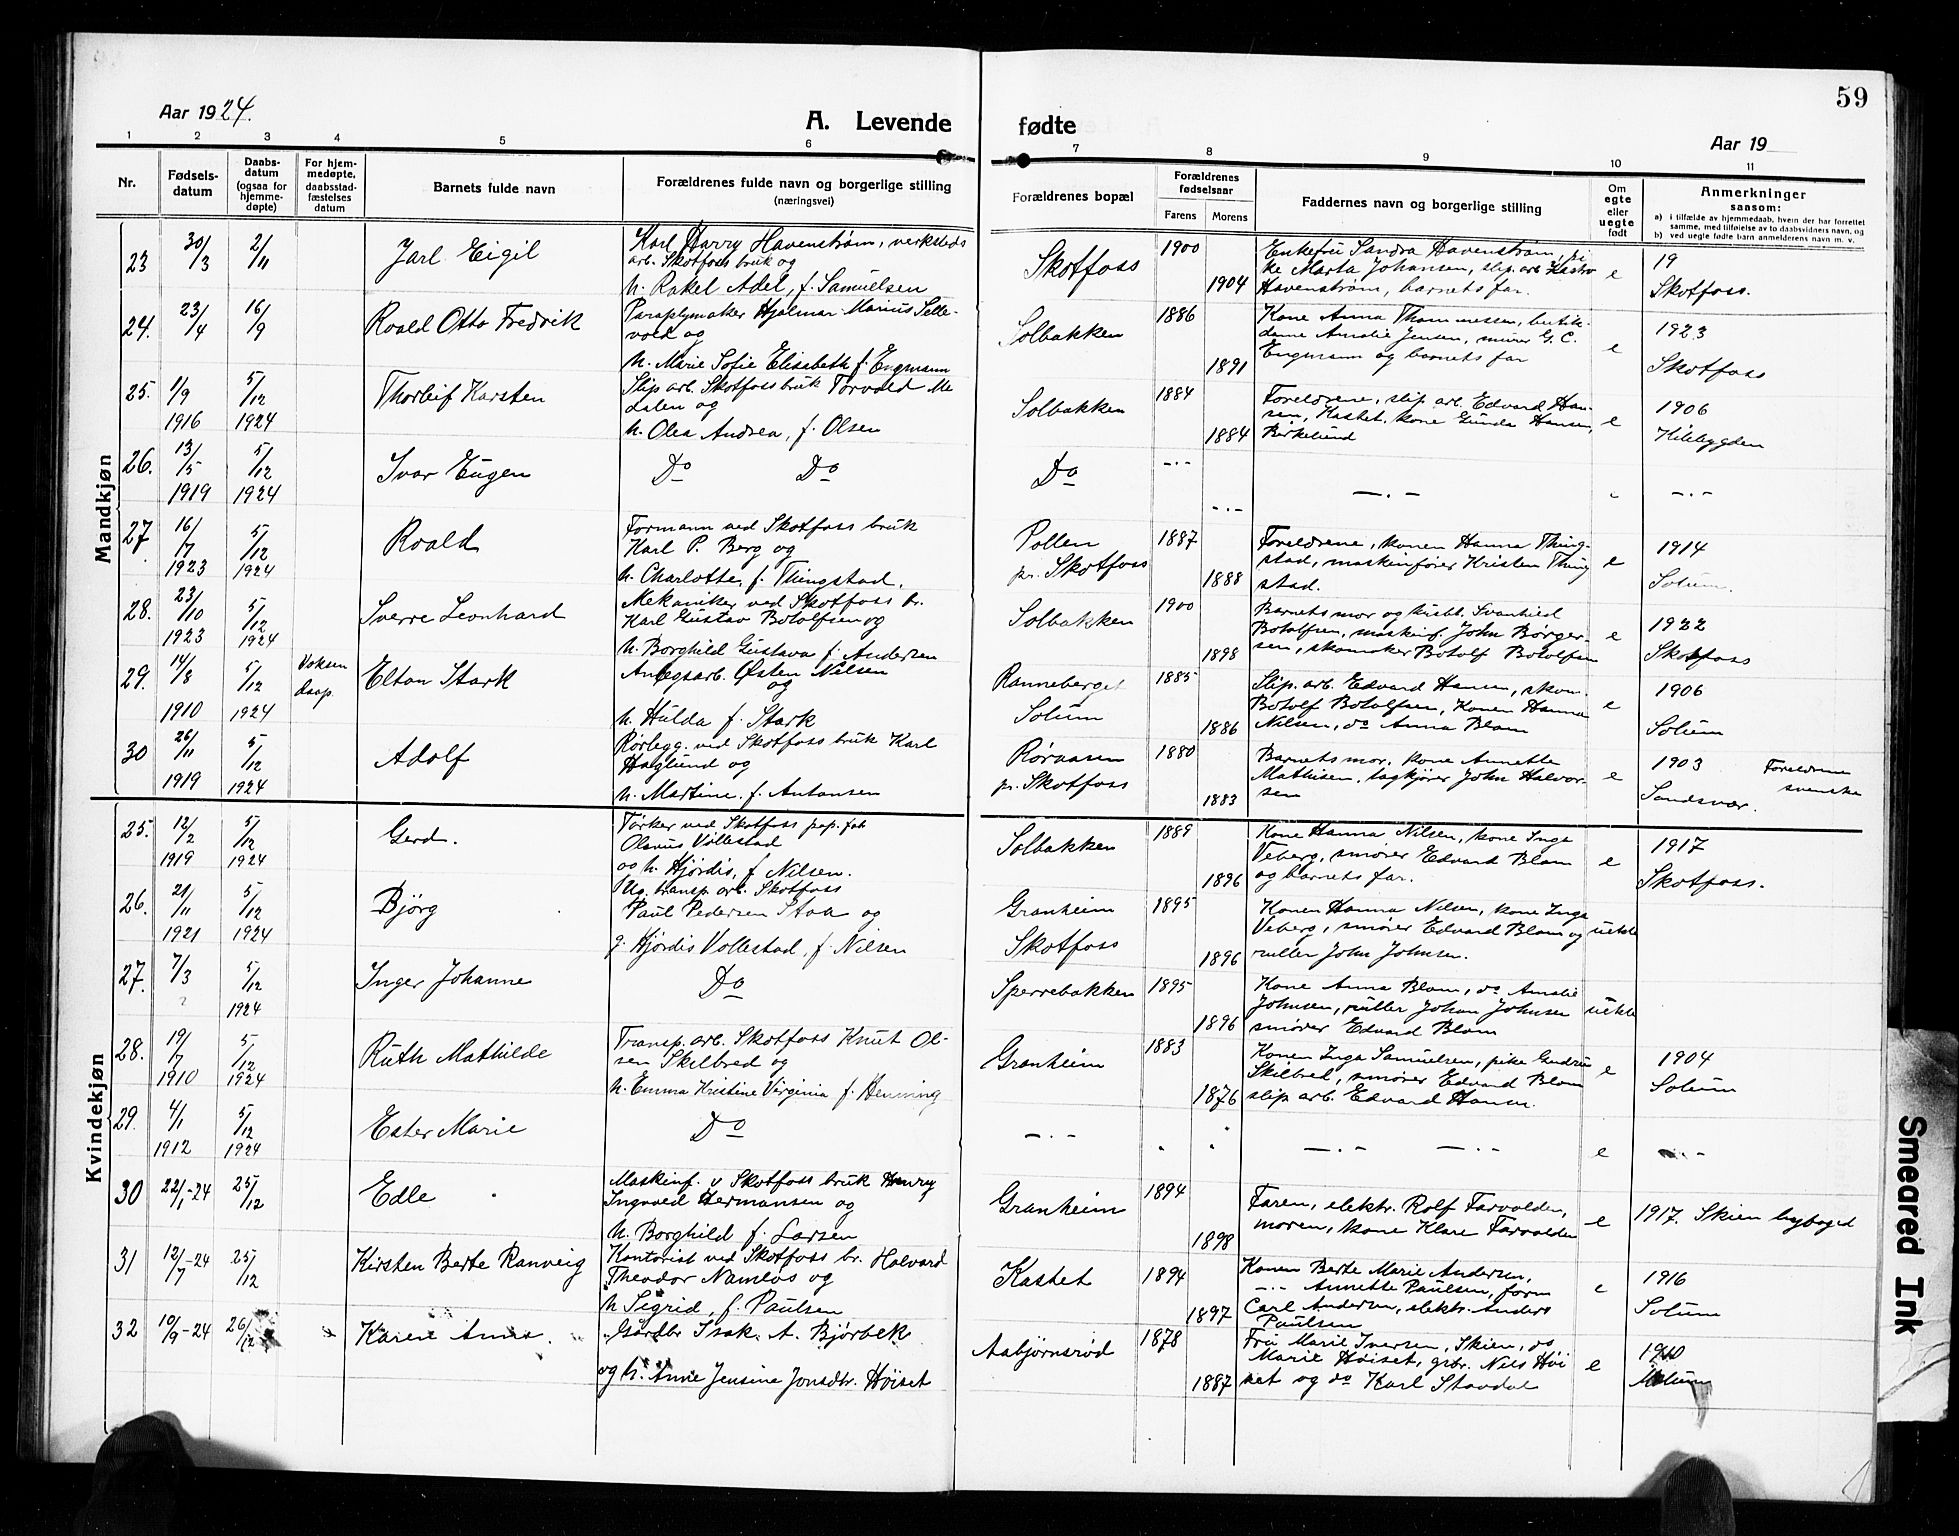 59
Aar 1924.
A. Levende fødte
Aar 19
1 2 3 4 5 6 7 8 9 10 11
Nr.
Fødsels-
datum
Daabs-
datum
(ogsaa for
hjemme-
døpte)
For hjem-
medøpte,
daabsstad-
fæstelses
datum
Barnets fulde navn
Forældrenes fulde navn og borgerlige stilling
(næringsvei)
Forældrenes bopæl
Forældrenes
fødselsaar
Farens Morens
Faddernes navn og borgerlige stilling
Om
egte
eller
uegte
født
Anmerkninger
saasom:
a) i tilfælde av hjemmedaab, hvem der har forrettet
samme, med tilføielse av to daabsvidners navn, og
b) ved uegte fødte barn anmelderens navn m. v.
Mandkjøn
23 30/3 2/11 Jarl Eigil
Karl Harry Havenstrøm, verksteds
arb. Skotfoss bruk og
h. Rakel Adel, f. Samuelsen
Skotfoss 1900 1904
Enkefru Sandra Havenstrøm, pi
ke Marta Johansen, slip. arb.
Havenstrøm, barnets far.
e
19
Skotfoss.
24. 23/4 16/9 Roald Otto Fredrik
Paraplymaker Hjalmar Marius Selle-
vold og
h. Marie Sofie Elisabeth f. Engmann
Solbakken 1886 1891
Kone Anna Thommessen, butik-
dame Amalie Jensen, murer G. C.
Engmann og barnets far
e
1923
Skotfoss
25. 1/9 1916 5/12 1924 Thorleif Karsten
Slip. arb. Skotfoss bruk Torvald Me
lalen og
h. Olea Andrea, f. Olsen
Solbakken 1884 1884
Foreldrene, slip. arb. Edvard Han-
sen, Kastet, kone Gunda Hansen,
Birkelund
e
1906
Kilebygden
26. 13/5 1919 5/12 1924 Ivar Eugen
Do Do
Do -.- -.-
-.-
-.-
27 16/7 1923 5/12 1924 Roald
Formann ved Skotfoss bruk
Karl P. Berg og
h. Charlotte, f. Thingstad.
Pollen
pr. Skotfoss 1887 1888
Foreldrene, konen Hanna Thing-
stad, maskinfører Kristen Thing
stad.
e
1914
Solum.
28. 23/10 1923 5/12 1924 Sverre Leonhard
Mekaniker ved Skotfoss br.
Karl Gustav Botolfsen og
h. Borghild Gustava f. Andersen
Solbakken 1900 1898
Barnets mor og husb. Svanhild
Botolfsen, maskinf. John Børger-
sen, skomaker Botolf Botolfsen
e
1922
Skotfoss
29. 14/8 1910 5/12 1924 Voksen
daap. Elton Stark
Anlegsarb. Østen Nilsen
og
h. Hulda f. Stark
Ranneberget
Solum 1885 1886
Slip. arb. Edvard Hansen, skom.
Botolf Botolfsen, Konen Hanna
Nilsen, do Anna Blom
e
1906
Solum
30 26/11 1919 5/12 1924 Adolf
Rørlegg. ved Skotfoss bruk Karl
Haglund og
h. Martine, f. Antonsen
Røraasen
pr. Skotfoss 1880 1883
Barnets mor, kone Annette
Mathisen, tagkjører John Halvor-
sen
e
1903 Foreldrene
svenske
Sandsvær.
Kvindekjøn
25. 12/2 1919 5/12 1924 Gerd.
Tørker ved Skotfoss pap. fab
Olavus Vollestad
og h. Hjørdis, f. Nilsen.
Solbakken 1889 1896
Kone Hanna Nilsen, kone Inga
Veberg, smører Edvard Blom
og barnets far.
e
1917
Skotfoss.
26. 21/11 1921 5/12 1924 Bjørg
Ug. transp. arb. Skotfoss
Paul Pedersen Stoa og
g. Hjørdis Vollestad, f. Nilsen
Granheim
Skotfoss 1895 1896
Konen Hanna Nilsen, kone Inga
Veberg, smører Edvard Blom og
ruller John Johnsen.
uekte
27. 7/3 ? 5/12 1924 Inger Johanne
Do
Sperrebakken 1895 1896
Kone Anna Blom, do Amalie
Johnsen, ruller Johan Johnsen
smører Edvard Blom
uekte
28. 19/7 1910 5/12 1924 Ruth Mathilde
Transp. arb. Skotfoss Knut Ol-
sen Skilbred og
h. Emma Kristine Virginia f. Henning
Granheim 1883 1876
Konen Inga Samuelsen, pike Gudru
Skilbred, smører Edvard Blom
slip. arb. Edvard Hansen.
e
1904
Solum
29. 4/1 1912 5/12 1924 Ester Marie
Do
-.-
-.- -.-
e
-.-
30 22/1-24 25/12 Edle
Maskinf. v Skotfoss bruk Henry
Ingvald Hermansen og
h. Borghild f. Larsen
Granheim 1894 1898
Faren, elektr. Rolf Farvolden,
moren, kone Klare Farvolden
e
1917. Skien
31 12/7-24 25/12 Kirsten Berte Ranveig
Kontorist ved Skotfoss br. Halvard
Theodor Namløs og
h Sigrid, f. Paulsen
Kastet 1894 1897
Konen Berte Marie Andersen,
-.- Annette Paulsen, form
Carl Andersen, elektr. Anders
Paulsen
e
1916
Solum
32 10/9-24 26/12 Karen Anna.
Gardbr Isak A. Bjørbek
og h. Anne Jensine Jonsdtr. Høiset
Aabjørnsrød 1878 1887
Fru Marie Iversen, Skien, do
Marie Høiset, grbr. Nils Høi
set og do Karl Stavdal
e
1910
Solum
Smeared Ink